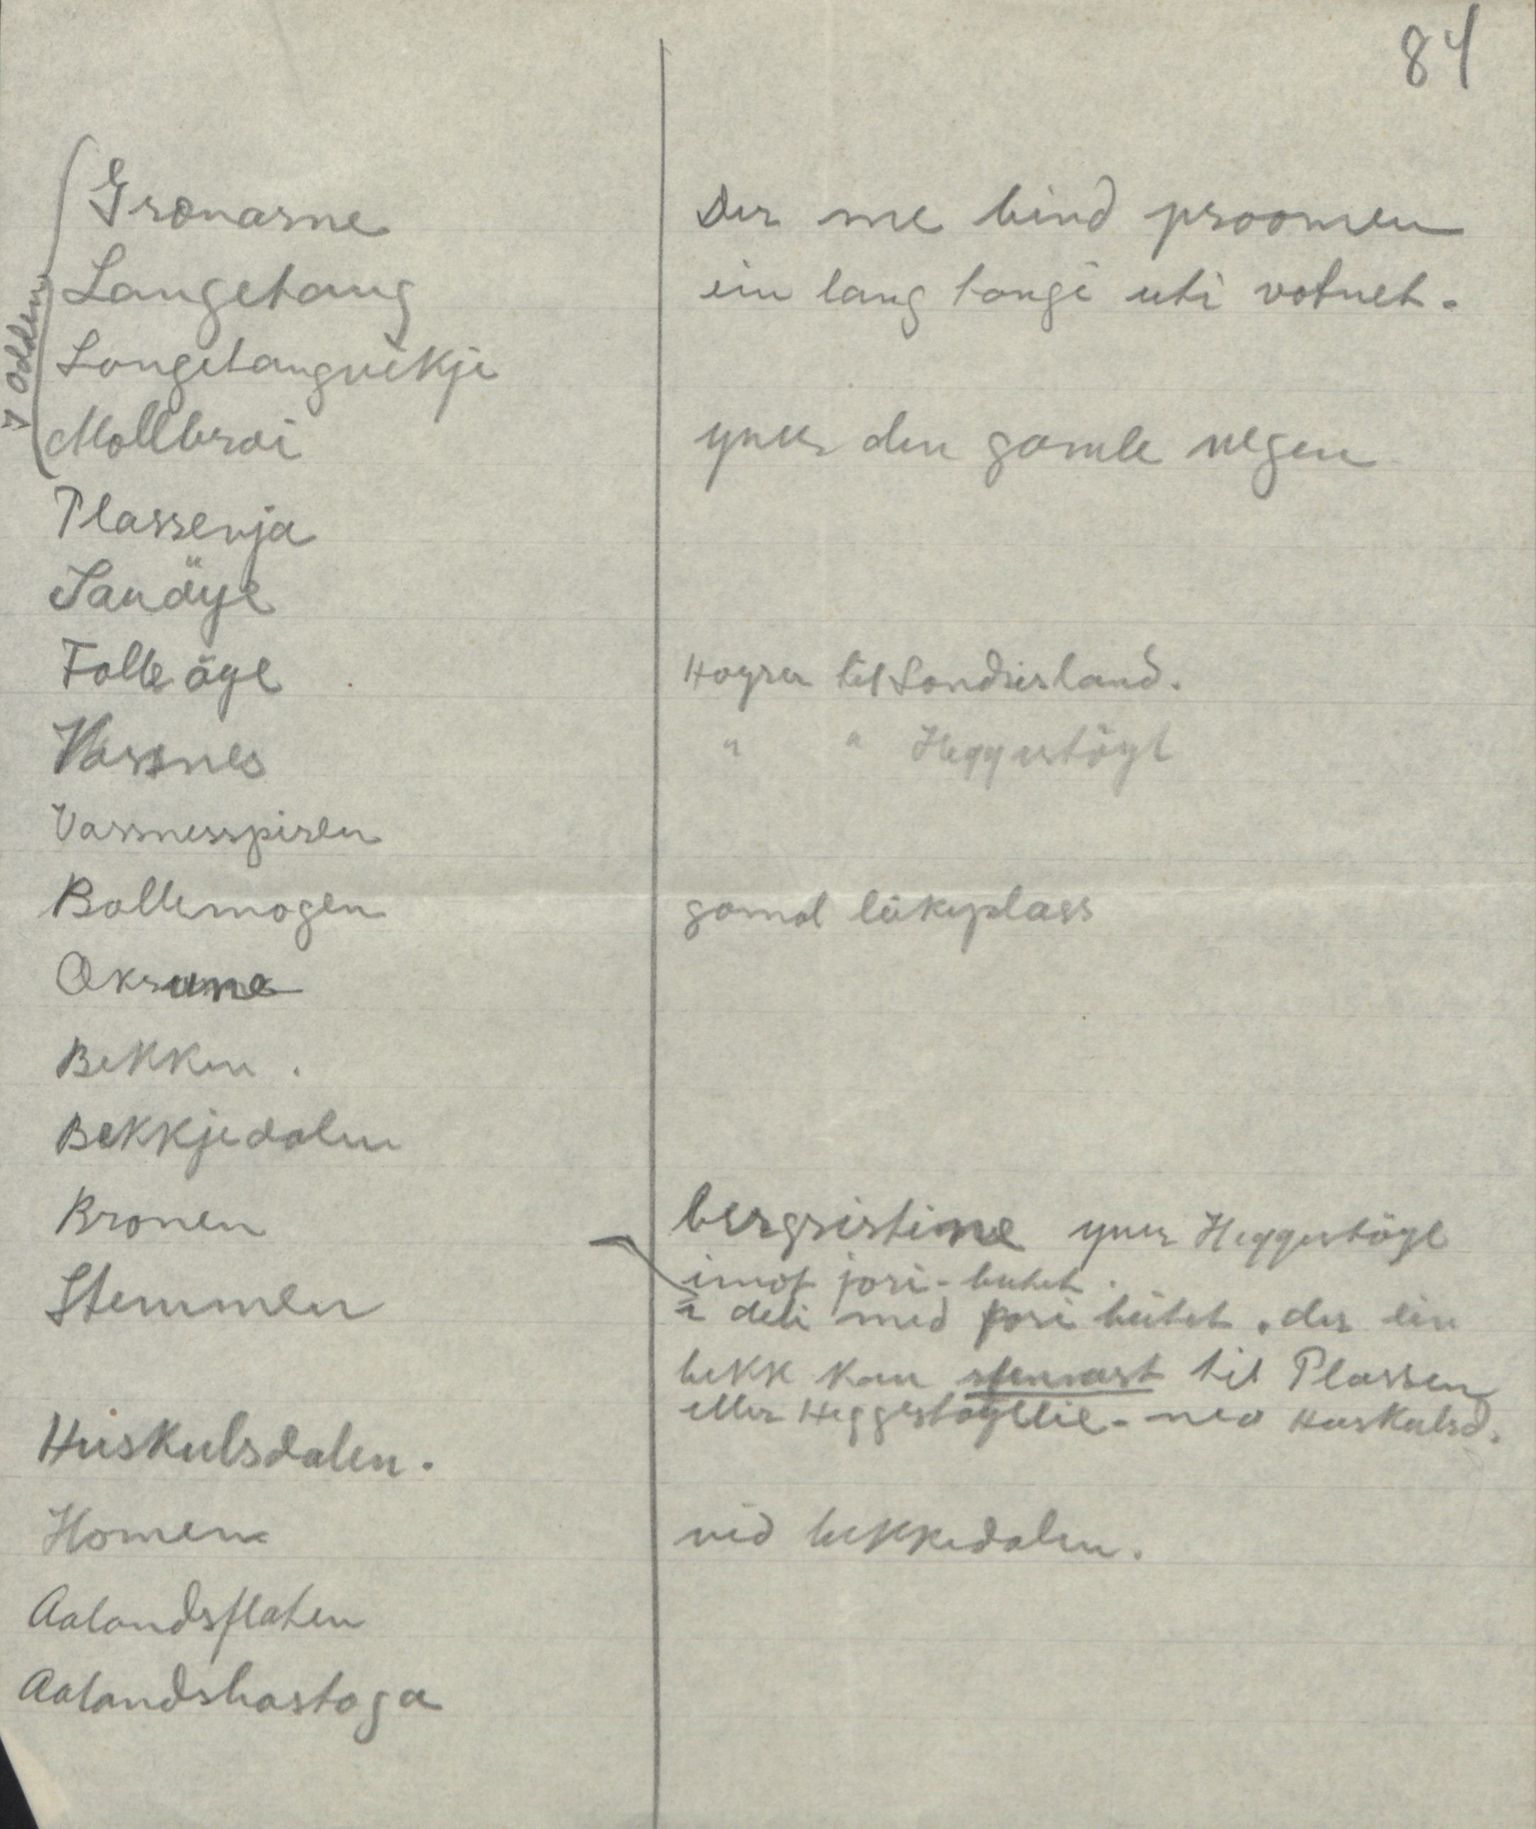 84
I odden
Grønarne
Der me bind proomen
Langetang
ein lang tangi uti votnet.
Langetangvikje
Mollbroi
yver den gamle vegen
Plassevja
Sandöye
Folleöye
Høyrer til Sondresland.
Vassnes
" " Heggestöyl
Vassnesspiren
Bollemogen
gamal leikeplass
Oksrune
Bekken.
Bekkjedalen
Bronen
bergristine yver Heggestöyl
imot jori-butet.
Stemmen
i deli med jori bütet. der ein
bekk kan stennast til Plassen
eller Heggestøyllie - ned Huskulsd.
Huskulsdalen.
Homen
vid bekkedalen.
Aalandsflaten
Aalandshastoga